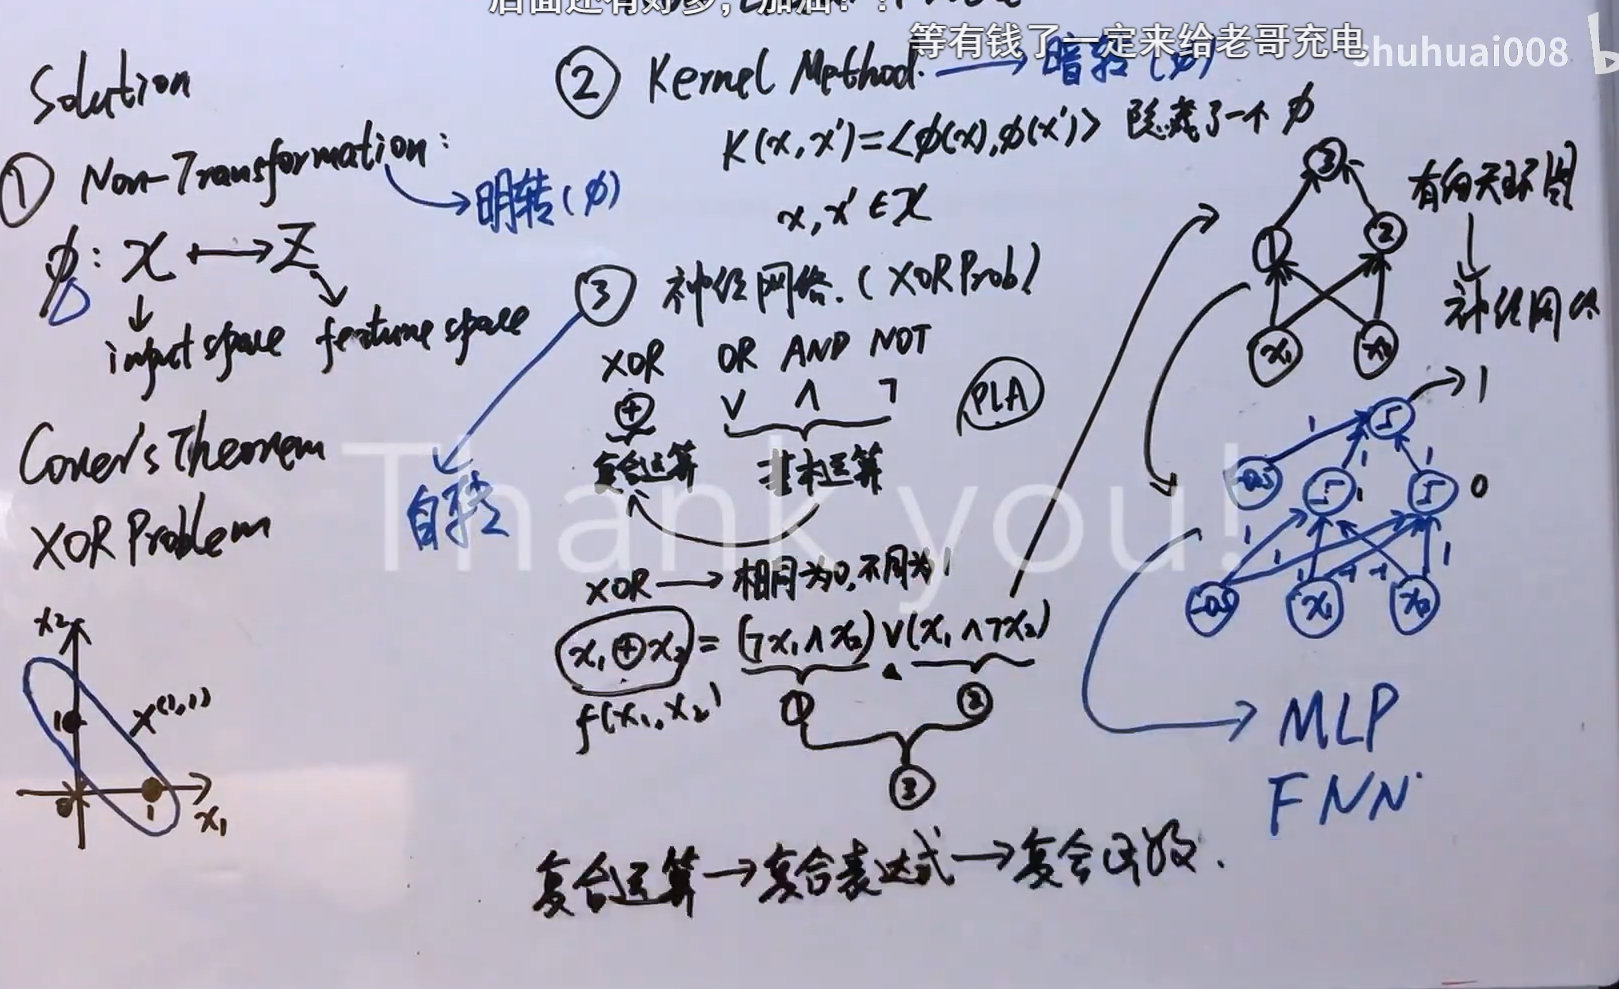 等有钱了一定来给老哥充电
shuhuai008
Solution
① Non-Transformation:
明转(φ)
φ: X ⟼ Z
input space feature space
Cover's Theorem
XOR Problem
x₂
1
x^(1,1)
0 1 x₁
② Kernel Method. → 暗转(φ)
K(x,x')=<φ(x),φ(x')> 隐藏了一个φ
x,x'∈X
③ 神经网络.(XOR Prob)
自转
XOR OR AND NOT
⊕ ∨ ∧ ¬
复合运算 基本运算
PLA
Thank you!
XOR → 相同为0,不同为1
x₁⊕x₂ = (¬x₁∧x₂)∨(x₁∧¬x₂)
f(x₁,x₂) ① ②
③
复合运算→复合表达式→复合函数.
③
① ②
x₁ x₂
有向无环图
神经网络
1
1
-0.5 1 1 0
1 1 -1 -1 1
-0.5 x₁ x₂
MLP
FNN